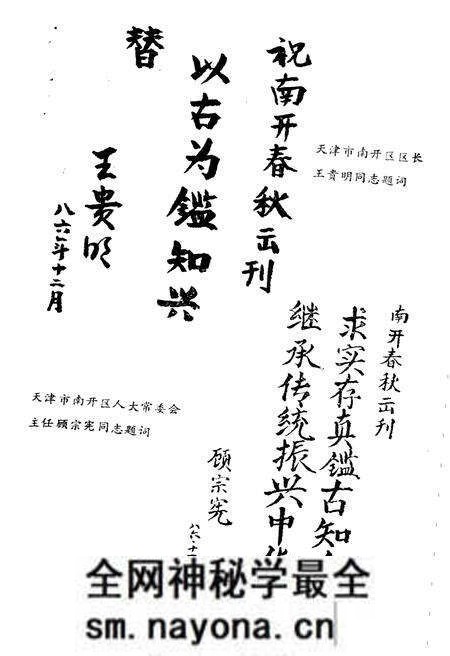 祝南开春秋出刊
以古为鑑知兴
替
王贵明
八六年十二月
天津市南开区区长
王贵明同志题词
南开春秋出刊
求实存真鑑古知
继承传统振兴中
顾宗宪
八六·十一
天津市南开区人大常委会
主任顾宗宪同志题词
全网神秘学最全
sm.nayona.cn